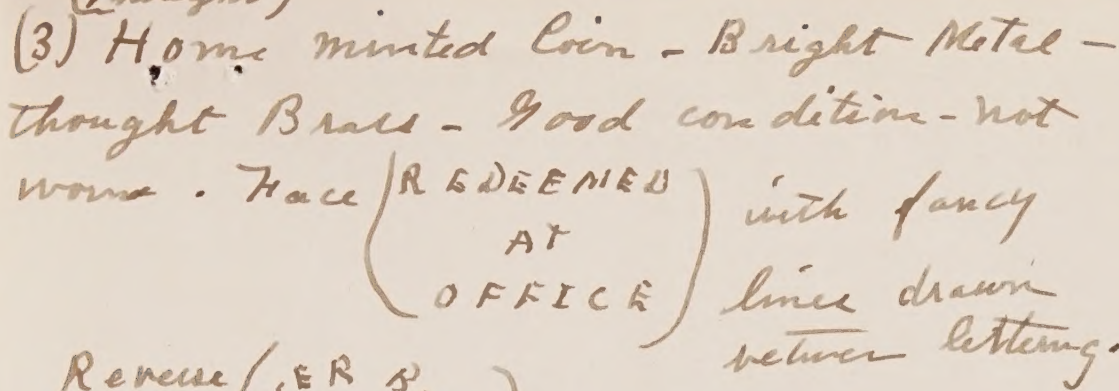 (3) Home minted Coin - Bright Metal -
thought Brass - Good condition - not
worn. Face (REDEEMED
AT
OFFICE) with fancy
lines drawn
between lettering.
Reverse (